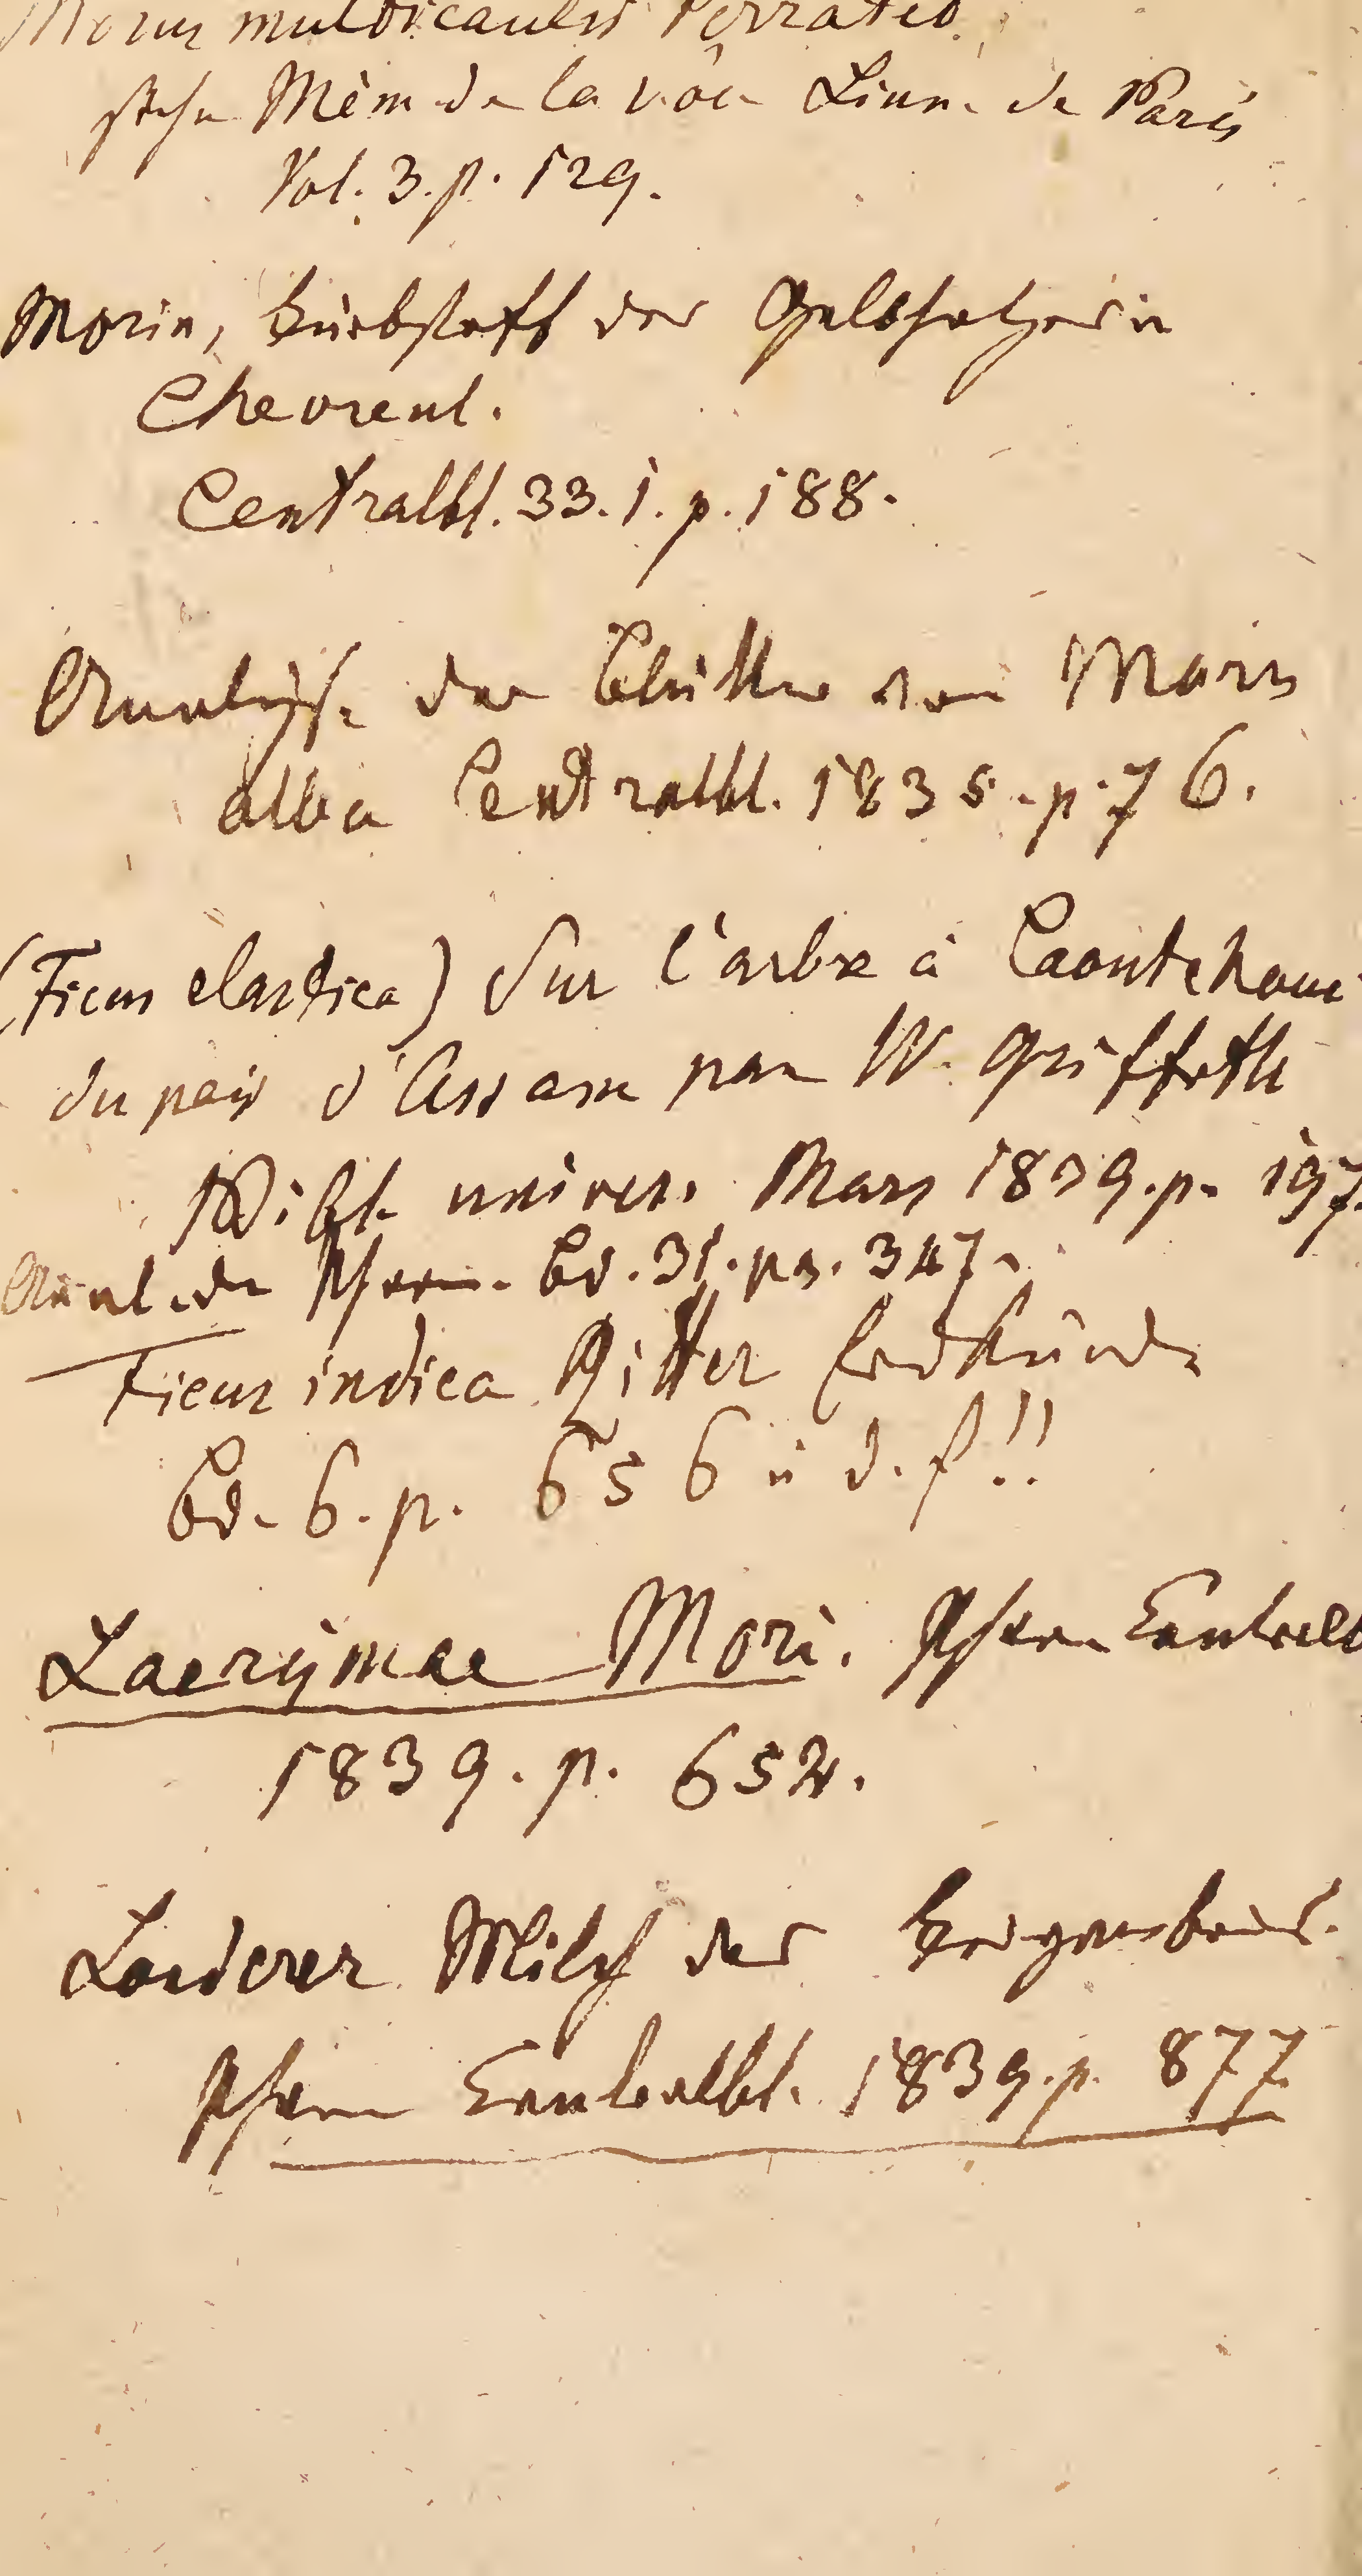 Morus multicaulis Perrated.
siehe Mèm de la soc Linn. de Paris
Vol. 3. p. 129.
Morin, Farbstoff des Gelbholzes v
Chevreul.
Centralbl. 33. 1. p. 188.
Analyse der Blätter von Morus
alba Centralbl. 1835. p. 76.
(Ficus elastica) Sur l'arbre à Caoutchouc
du pais d'Assam par W. Griffeth
Bibl. univers. Mars 1839. p. 197.
Annal. der Pharm. Bd. 31. pa. 347.
Ficus indica Ritter Erdkunde
Bd. 6. p. 656 u d. f!!
Lacrymae Mori. Pharm Centralbl
1839. p. 652.
Landerer Milch des Feigenbaums.
Pharm Centralbl. 1839. p. 877.